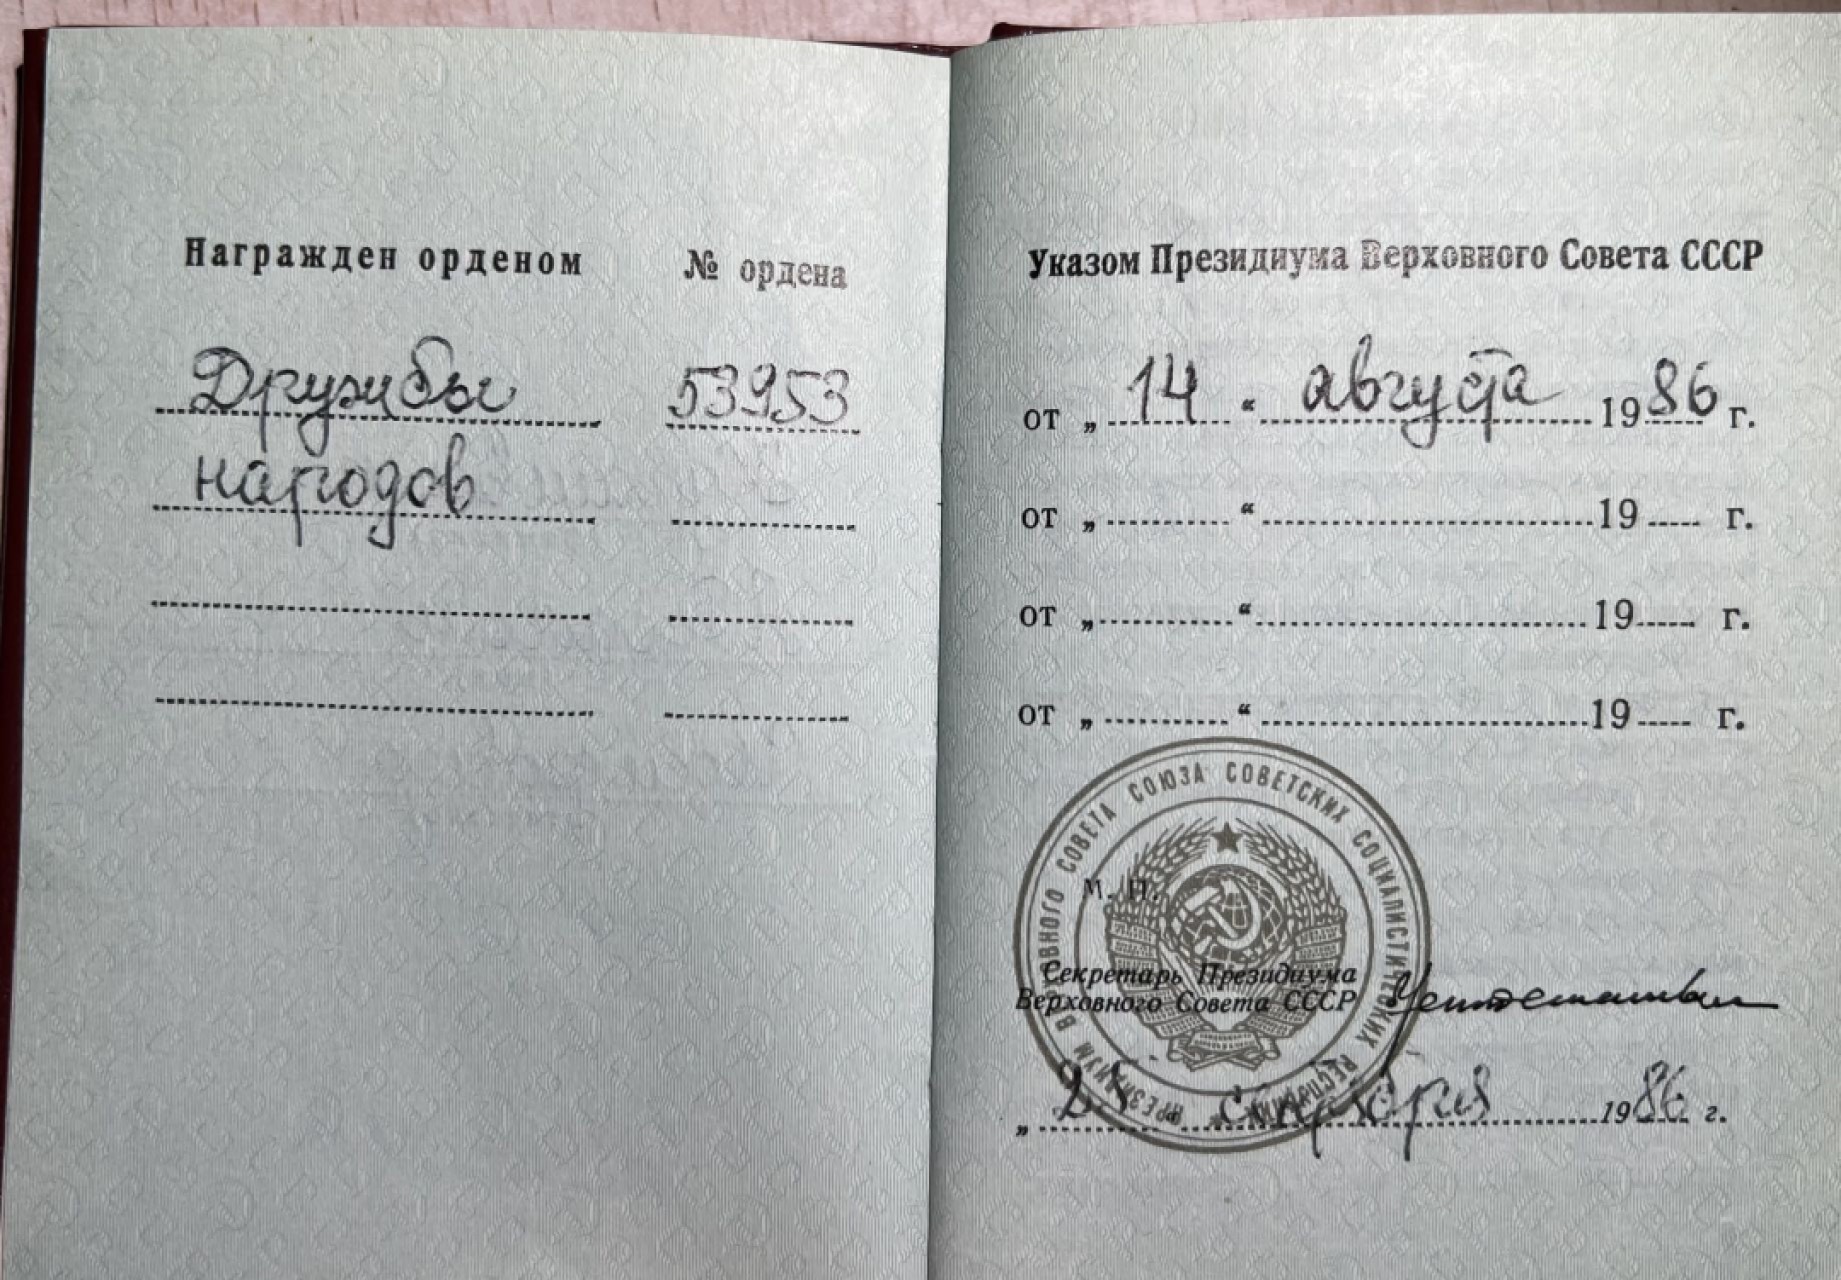 Награжден орденом № ордена
Дружбы 53953
народов
Указом Президиума Верховного Совета СССР
от „ 14 “ августа 1986 г.
от „ “ 19 г.
от „ “ 19 г.
от „ “ 19 г.
ПРЕЗИДИУМ ВЕРХОВНОГО СОВЕТА СОЮЗА СОВЕТСКИХ СОЦИАЛИСТИЧЕСКИХ РЕСПУБЛИК
М. П.
Секретарь Президиума
Верховного Совета СССР
„ сентября 1986 г.